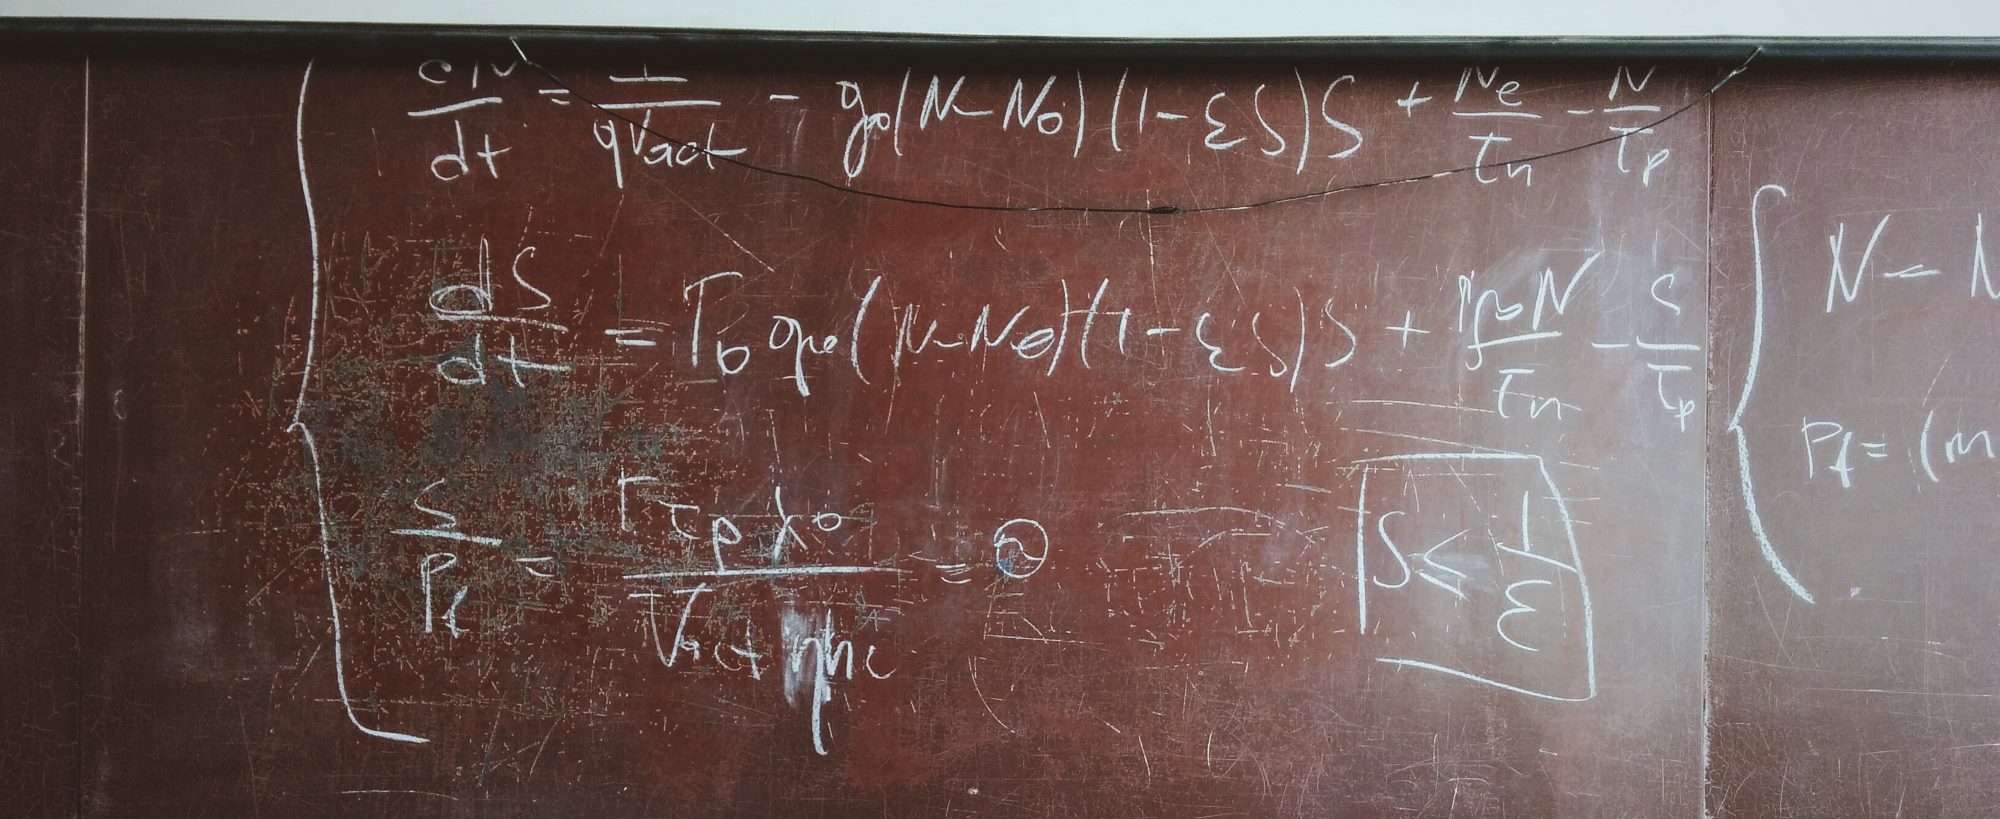 dN/dt = I/(qVact) - g0(N-N0)(1-εS)S + Ne/τn - N/τp
dS/dt = Γ0 g0(N-N0)(1-εS)S + Γβ0N/τn - S/τp
S/Pf = Γτpλ0/(Vact ηhc) = ν
S ≤ 1/ε
N - N
Pf = (m